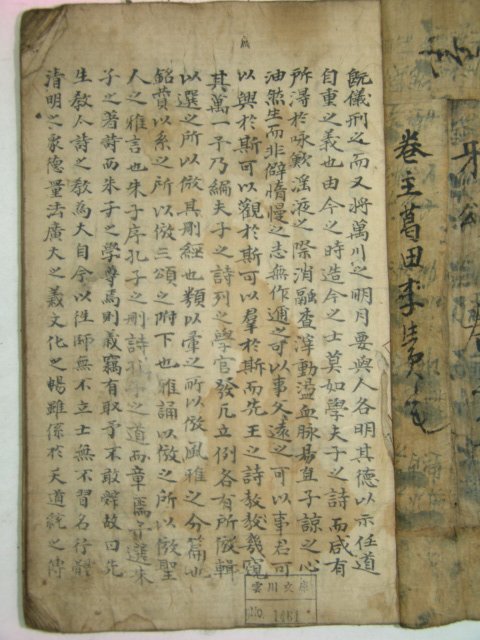 既儀刑之而又將萬川之明月要與人各明其德以示任道
自重之義也由今之時造今之士莫如學夫子之詩而咸有
所得於咏歎滛液之際消融查滓動盪血脉易直子諒之心
油然生而非僻惰慢之志無作邇之可以事父遠之可以事君可
以興於斯可以觀於斯可以羣於斯而先王之詩敎敎幾窺
其萬一予乃編夫子之詩列之學官發凡立例各有所倣輯
以選之所以倣其刪經也類以彙之所以倣風雅之分篇也
銘賛以系之所以倣三頌之附下也雅誦以
人之雅言也朱子序孔子之刪詩孔子之道而章焉予選朱
子之著詩而朱子之學尊焉則義竊有取予不敢辭故曰先
生敎人詩之敎爲大自今以徃師無不立士無不習名行
淸明之象德量法廣大之義文化之暢雖係於天道統之傳
卷主葛田李生員宅
雲川文庫
NO. 1661